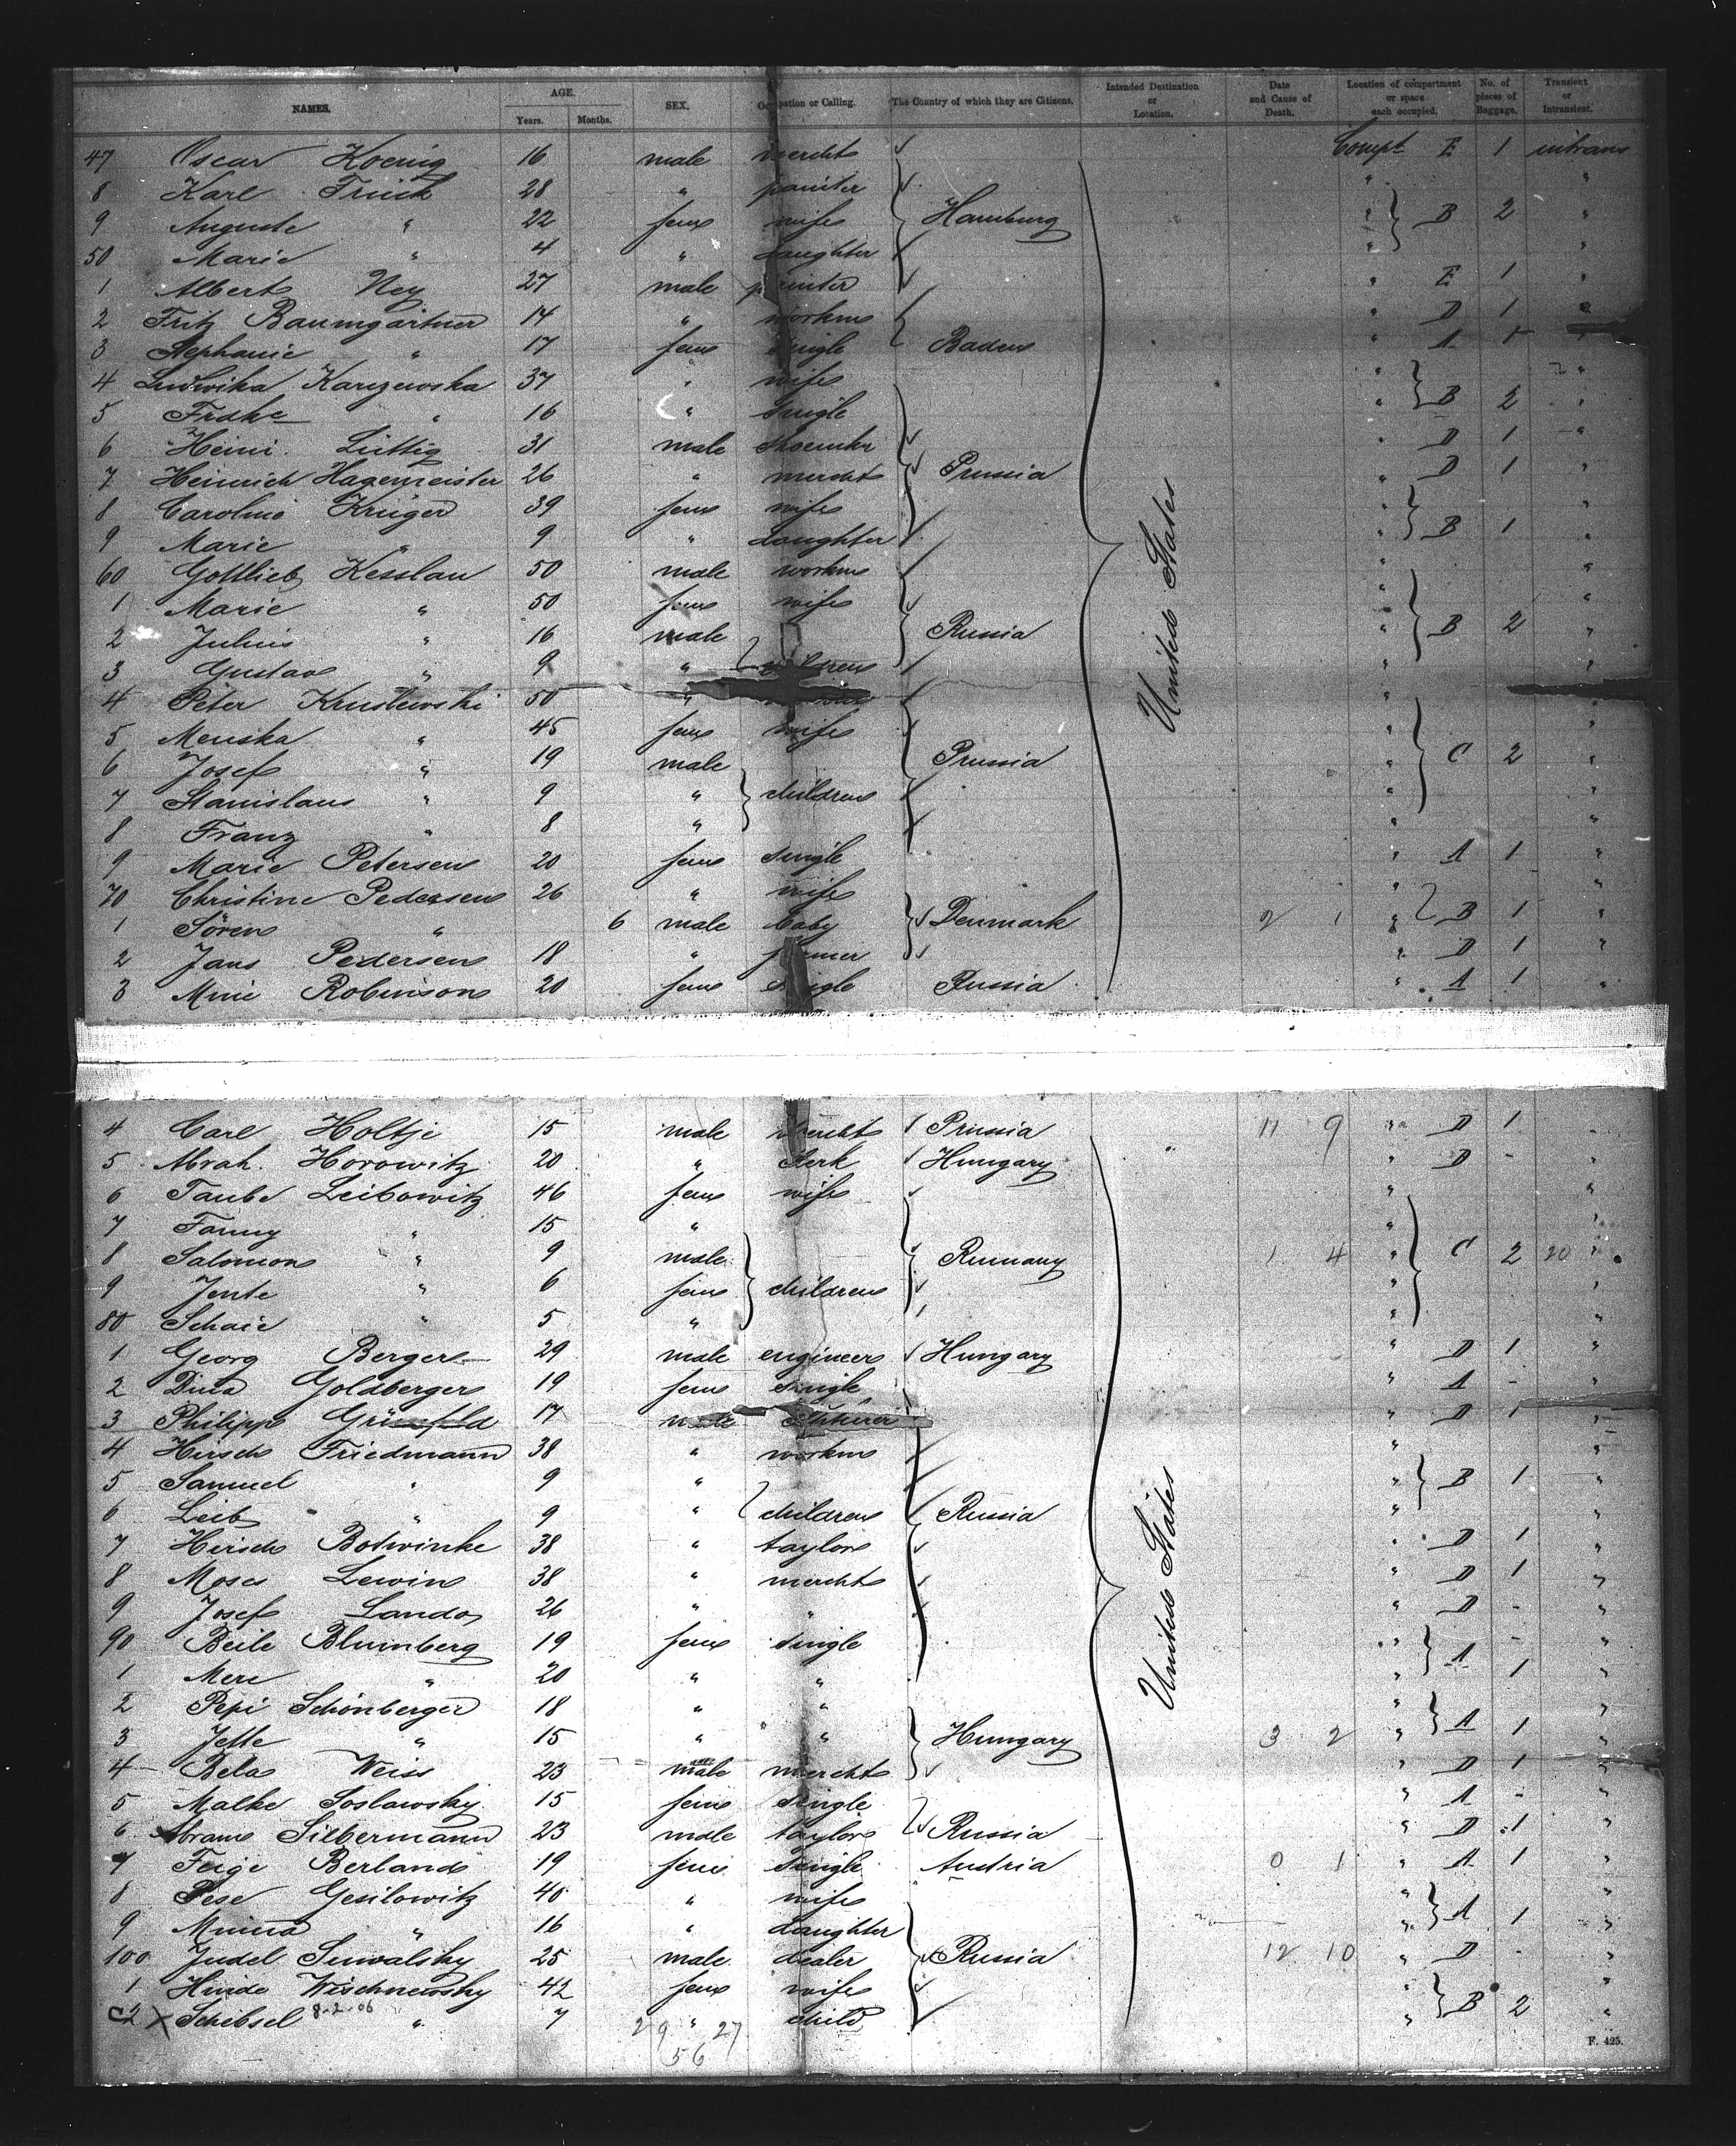 NAMES. AGE. Years. Months. SEX. Occupation or Calling. The Country of which they are Citizens. Intended Destination or Location. Date and Cause of Death. Location of compartment or space each occupied. No. of pieces of Baggage. Transient or Intransient.
47 Oscar Koenig 16 male mercht Compt E 1 intrans
8 Karl 28 " painter " "
9 Auguste " 22 fem wife Hamburg " B 2 "
50 Marie " 4 " daughter " "
1 Albert Ney 27 male " E 1 "
2 Fritz Baumgärtner 14 " workm " D 1 "
3 Stephanie " 17 fem single Baden " A 1 "
4 Ludwika Karczewska 37 " wife " "
5 Fridke " 16 " single " B 2 "
6 Heinr. Lüttig 31 male shoemkr " D 1 "
7 Heinrich Hagemeister 26 " mercht Prussia " D 1 "
8 Caroline Krüger 39 fem wife " "
9 Marie " 9 " daughter " B 1 "
60 Gottlieb Kesslau 50 male workm " "
1 Marie " 50 fem wife " "
2 Julius " 16 male Russia " B 2 "
3 Gustav " 9 " children " "
4 Peter Kruslewski 50 " " "
5 Meriska " 45 fem wife " "
6 Josef " 19 male Prussia " C 2 "
7 Stanislaus " 9 " children " "
8 Franz " 8 " " "
9 Marie Petersen 20 fem single " A 1 "
70 Christine Pedersen 26 " wife " "
1 Sören " 6 male baby Denmark 2 1 " B 1 "
2 Jans Pedersen 18 " farmer " D 1 "
3 Mine Robinson 20 fem single Russia " A 1 "
United States
4 Carl Holtje 15 male mercht Prussia 11 9 " D 1
5 Abrah. Horowitz 20 " clerk Hungary " D - "
6 Taube Leibowitz 46 fem wife " "
7 Fanny " 15 " " "
8 Salomon " 9 male Rumany 1 4 " C 2 20 "
9 Jente " 6 fem children " "
80 Schaie " 5 " " "
1 Georg Berger 29 male engineer Hungary " D 1 "
2 Dina Goldberger 19 fem single " A - "
3 Philipp Grünfeld 17 male " D 1 "
4 Hirsch Friedmann 38 " workm " "
5 Samuel " 9 " " B 1 "
6 Leib " 9 " children Russia " "
7 Hirsch Botwinke 38 " taylor " D 1 "
8 Moses Lewin 38 " mercht " D 1 "
9 Josef Landa 26 " " " D - "
90 Beile Blumberg 19 fem single " A - "
1 Mere " 20 " " " 1 "
2 Pepi Schönberger 18 " " " "
3 Jette " 15 " " Hungary 3 2 " A 1 "
4 Bela Weiss 23 male mercht " D 1 "
5 Malke Soslawsky 15 fem single " A - "
6 Abram Silbermann 23 male taylor Russia " D 1 "
7 Feige Berland 19 fem single Austria 0 1 " A 1 "
8 Pese Gesilowitz 40 " wife " "
9 Minna " 16 " daughter " A 1 "
100 Judel Suwalsky 25 male dealer Russia 12 10 " D - "
1 Hinde Wischnewsky 42 fem wife " "
2 X Schebsel 8-2-06 " 7 " child " B 2 "
United States
29 27
56
F. 425.